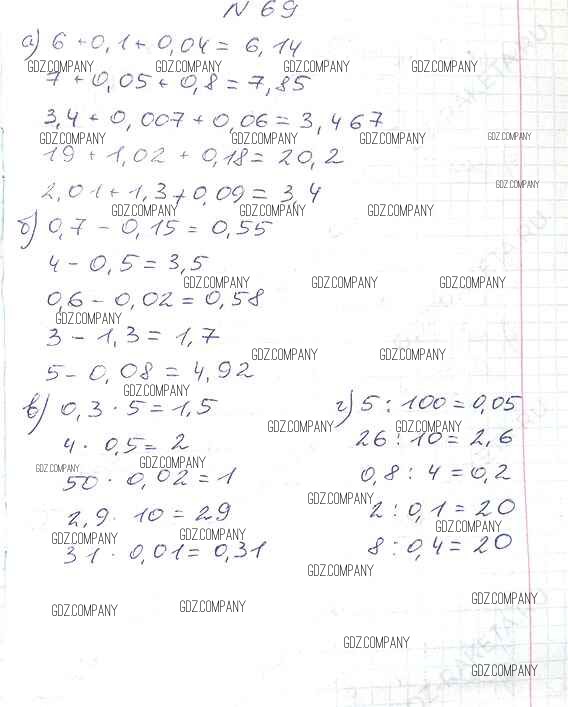 N 69
а) 6 + 0,1 + 0,04 = 6,14
GDZ.COMPANY GDZ.COMPANY GDZ.COMPANY GDZ.COMPANY
7 + 0,05 + 0,8 = 7,85
3,4 + 0,007 + 0,06 = 3,467
GDZ.COMPANY GDZ.COMPANY GDZ.COMPANY GDZ.COMPANY
19 + 1,02 + 0,18 = 20,2
GDZ.COMPANY
2,01 + 1,3 + 0,09 = 3,4
GDZ.COMPANY GDZ.COMPANY GDZ.COMPANY
б) 0,7 - 0,15 = 0,55
4 - 0,5 = 3,5
GDZ.COMPANY GDZ.COMPANY GDZ.COMPANY
0,6 - 0,02 = 0,58
GDZ.COMPANY
3 - 1,3 = 1,7
GDZ.COMPANY GDZ.COMPANY
5 - 0,08 = 4,92
GDZ.COMPANY
в) 0,3 · 5 = 1,5
GDZ.COMPANY
4 · 0,5 = 2
GDZ.COMPANY GDZ.COMPANY
50 · 0,02 = 1
2,9 · 10 = 29
GDZ.COMPANY GDZ.COMPANY
31 · 0,01 = 0,31
г) 5 : 100 = 0,05
GDZ.COMPANY
26 : 10 = 2,6
0,8 : 4 = 0,2
GDZ.COMPANY
2 : 0,1 = 20
GDZ.COMPANY
8 : 0,4 = 20
GDZ.COMPANY
GDZ.COMPANY GDZ.COMPANY GDZ.COMPANY
GDZ.COMPANY
GDZ.COMPANY